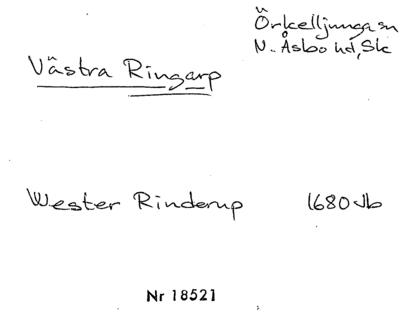 Örkelljunga sn
N. Åsbo hd, Sk
Västra Ringarp
Wester Rinderup 1680 Jb
Nr 18521